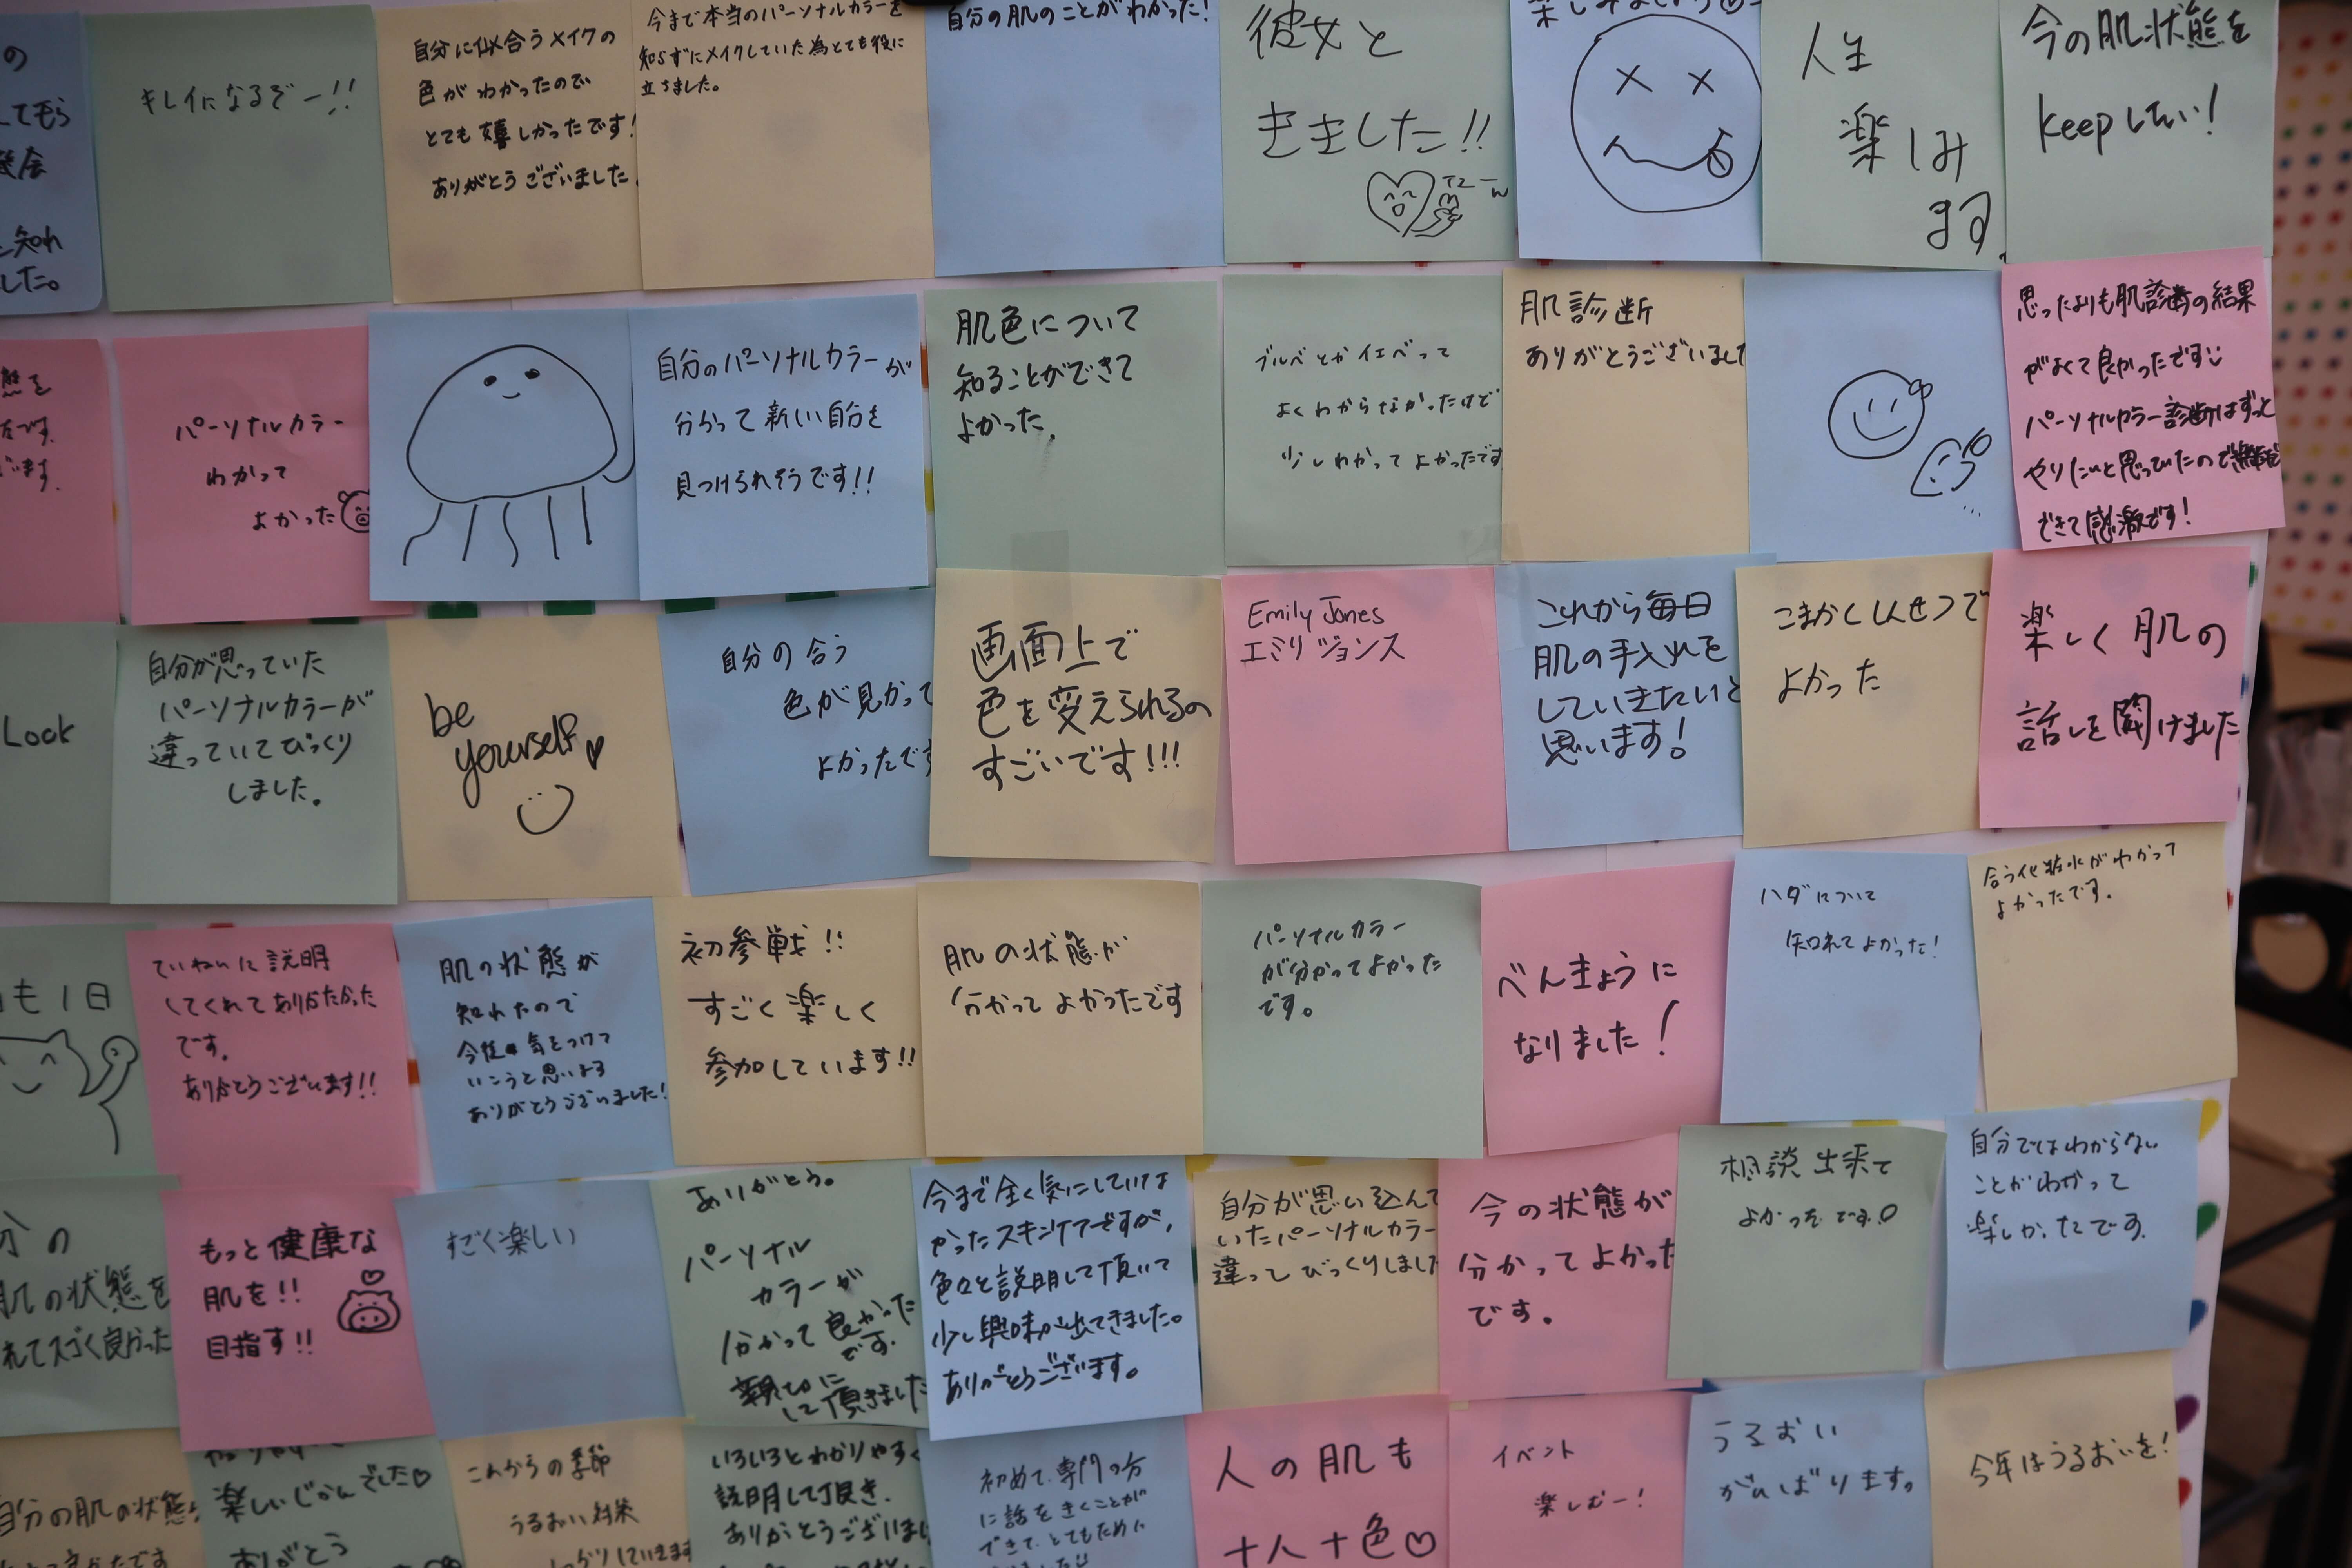 の
してもら
機会
知れ
した。
キレイになるぞー!!
自分に似合うメイクの
色がわかったので
とても嬉しかったです!
ありがとうございました
今まで本当のパーソナルカラーを
知らずにメイクしていた為とても役に
立ちました。
自分の肌のことがわかった!
彼女と
ききました!!
人生
楽しみ
ます
今の肌状態を
keepしたい!
態を
です。
います。
パーソナルカラー
わかって
よかった
自分のパーソナルカラーが
分かって新しい自分を
見つけられそうです!!
肌色について
知ることができて
よかった。
ブルベとかイエベって
よくわからなかったけど
少しわかってよかったです
肌診断
ありがとうございました
思ったよりも肌診断の結果
がよくて良かったです
パーソナルカラー診断はずっと
やりたいと思っていたので
できて感激です!
Lock
自分が思っていた
パーソナルカラーが
違っていてびっくり
しました。
be
yourself
自分の合う
色が見かって
よかったです
画面上で
色を変えられるの
すごいです!!!
Emily Jones
エミリ ジョンス
これから毎日
肌の手入れを
していきたいと
思います!
こまかくしんせつで
よかった
楽しく肌の
話しを聞けました
も1日
ていねいに説明
してくれてありがたかった
です。
ありがとうございます!!
肌の状態が
知れたので
今後は気をつけて
いこうと思います
ありがとうございました!
初参戦!!
すごく楽しく
参加しています!!
肌の状態が
分かってよかったです
パーソナルカラー
が分かってよかった
です。
べんきょうに
なりました!
ハダについて
知れてよかった!
合う化粧水がわかって
よかったです。
分の
肌の状態を
れてスゴく良かった
もっと健康な
肌を!!
目指す!!
すごく楽しい
ありがとう。
パーソナル
カラーが
分かって良かった
です。
親切に
して頂きました
今まで全く気にしていな
かったスキンケアですが、
色々と説明して頂いて
少し興味が出てきました。
ありがとうございます。
自分が思い込んで
いたパーソナルカラー
違ってびっくりしました
今の状態が
分かってよかった
です。
相談出来て
よかったです
自分ではわからない
ことがわかって
楽しかったです。
自分の肌の状態
楽しいじかんでした♡
ありがとう
これからの季節
うるおい対策
しっかりしていきます
いろいろとわかりやすく
説明して頂き、
ありがとうございまし
初めて、専門の方
に話をきくことが
できて、とてもために
人の肌も
十人十色♡
イベント
楽しむー!
うるおい
がんばります。
今年はうるおいを!